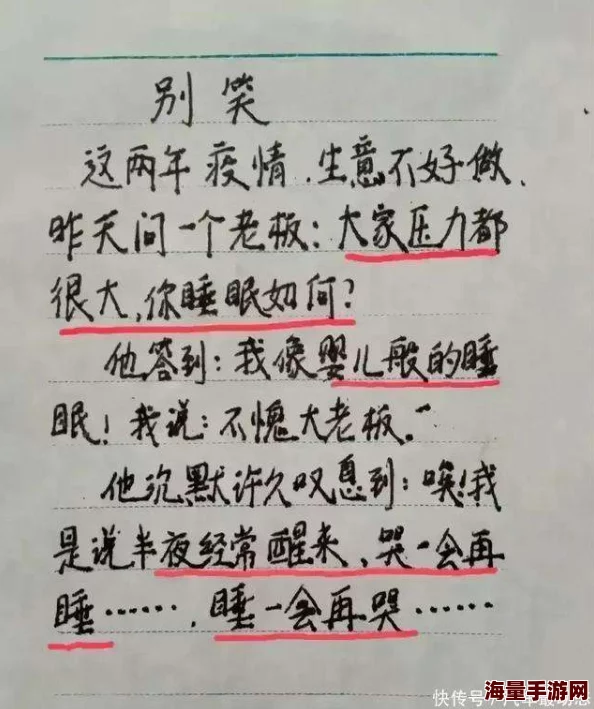 别笑
这两年疫情,生意不好做,
昨天问一个老板:大家压力都
很大,你睡眠如何?
他答到:我像婴儿般的睡
眠!我说:不愧大老板。"
他沉默许久叹息到:唉!我
是说半夜经常醒来,哭一会再
睡……,睡一会再哭……
快传号
海量手游网